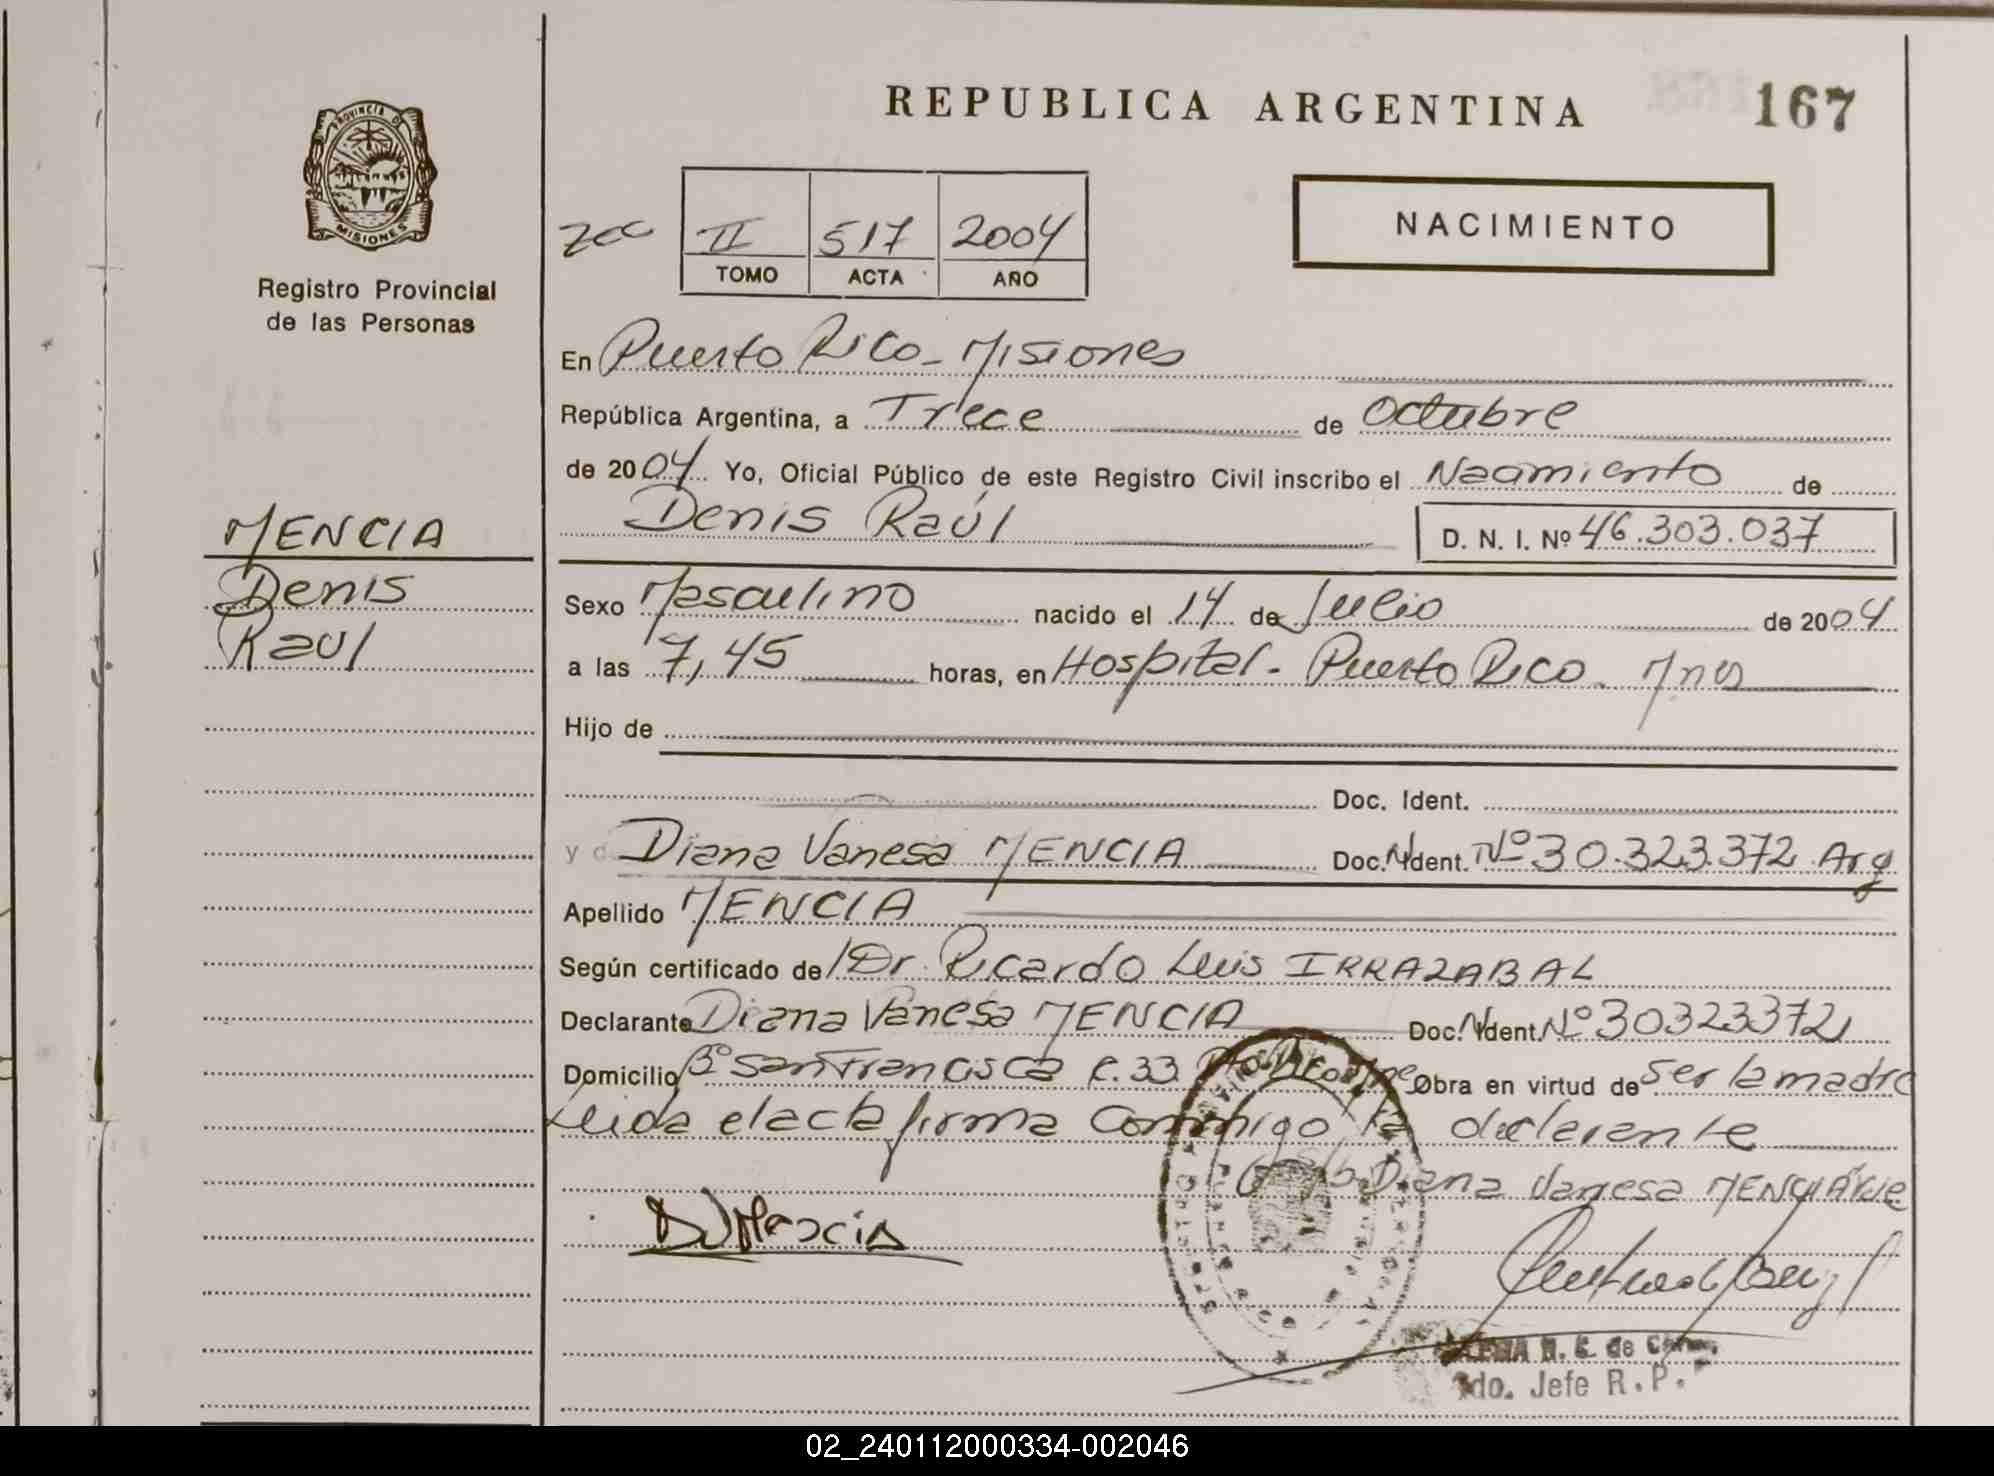 REPUBLICA ARGENTINA
167
PROVINCIA DE
MISIONES
Registro Provincial
de las Personas
NACIMIENTO
II 517 2004
TOMO ACTA AÑO
En Puerto Rico - Misiones
República Argentina, a Trece de Octubre
de 2004 Yo, Oficial Público de este Registro Civil inscribo el Nacimiento de
Denis Raúl D. N. I. Nº 46.303.037
MENCIA
Denis
Raul
Sexo Masculino nacido el 14 de Julio de 2004
a las 7,45 horas, en Hospital - Puerto Rico - Mnes
Hijo de
Doc. Ident.
y d Diana Vanesa MENCIA Doc. N. Ident. Nº 30.323.372 Arg
Apellido MENCIA
Según certificado de Dr. Ricardo Luis IRRAZABAL
Declarante Diana Vanesa MENCIA Doc. N. Ident. Nº 30323372
Domicilio Bº San Francisco C. 33 Obra en virtud de Ser la madre
Leida el acta firma conmigo la declarante
Diana Vanesa MENCIA
DVMencia
N. E. de
do. Jefe R. P.
02_240112000334-002046